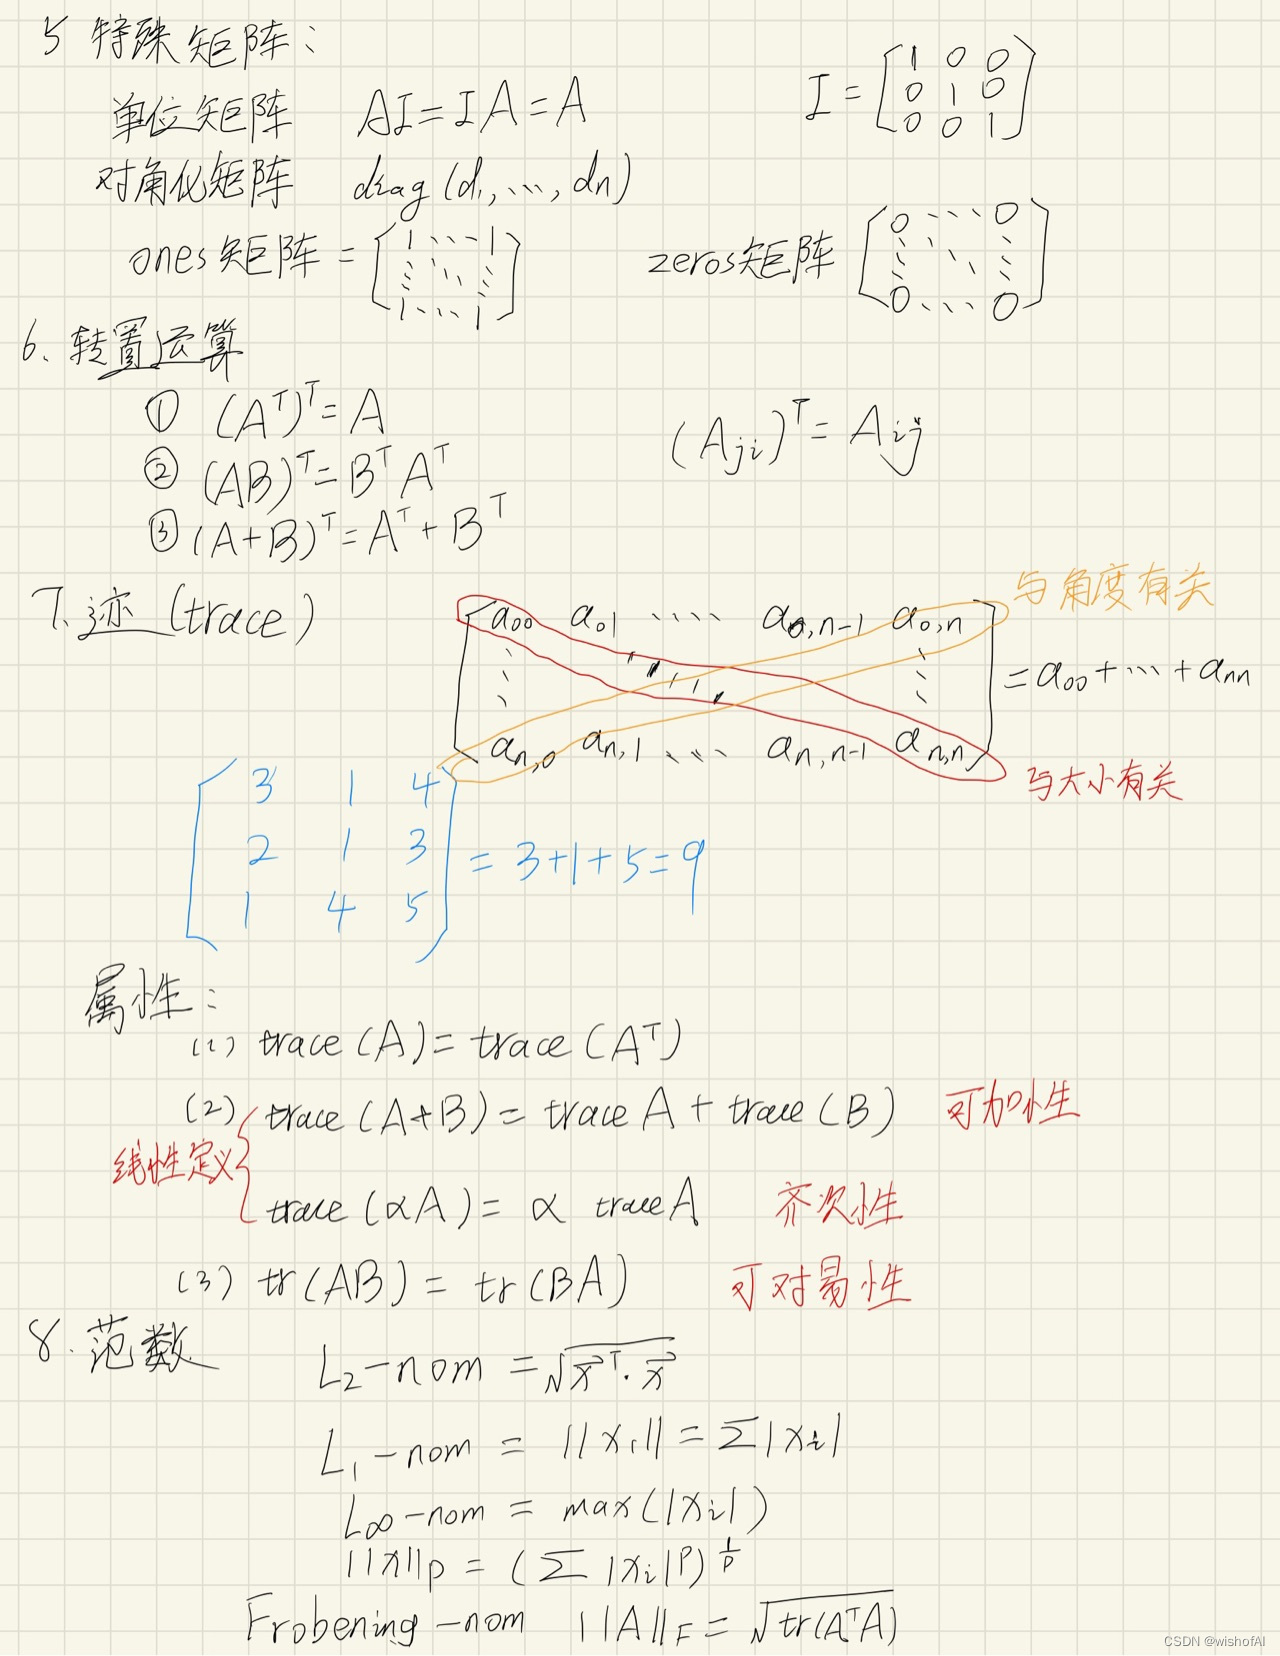 5 特殊矩阵：
单位矩阵 AI=IA=A I = [1 0 0
0 1 0
0 0 1]
对角化矩阵 diag(d₁,⋯,dn)
ones矩阵 = [1 ⋯ 1
⋮ ⋱ ⋮
1 ⋯ 1] zeros矩阵 [0 ⋯ 0
⋮ ⋱ ⋮
0 ⋯ 0]
6. 转置运算
① (Aᵀ)ᵀ=A
② (AB)ᵀ=BᵀAᵀ (Aji)ᵀ=Aij
③ (A+B)ᵀ=Aᵀ+Bᵀ
7. 迹 (trace) 与角度有关
[a00 a01 ⋯ a0,n-1 a0,n
⋮ ⋱ ⋮ = a00+⋯+ann
an,0 an,1 ⋯ an,n-1 an,n]
与大小有关
[3 1 4
2 1 3 = 3+1+5=9
1 4 5]
属性：
(1) trace(A)=trace(Aᵀ)
(2) trace(A+B)=trace A + trace(B) 可加性
线性定义
trace(αA)=α trace A 齐次性
(3) tr(AB)=tr(BA) 可对易性
8. 范数 L₂-nom = √(x⃗ᵀ·x⃗)
L₁-nom = ||x₁|| = Σ|xi|
L∞-nom = max(|xi|)
||x||p = (Σ|xi|ᵖ)^(1/p)
Frobening-nom ||A||F = √tr(AᵀA)
CSDN @wishofAI